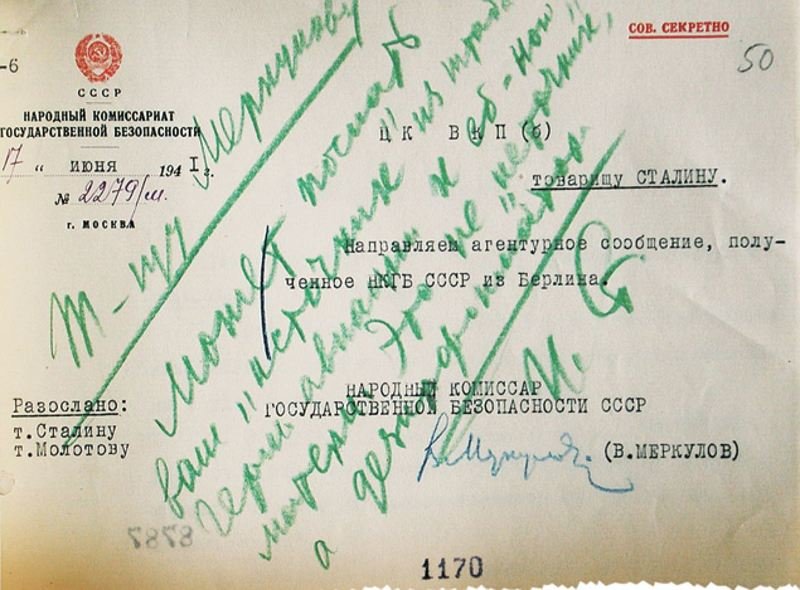 СОВ. СЕКРЕТНО
50
-6
СССР
НАРОДНЫЙ КОМИССАРИАТ
ГОСУДАРСТВЕННОЙ БЕЗОПАСНОСТИ
17 " июня 1941 г.
№ 2279/м.
г. МОСКВА
ЦК ВКП(б)
товарищу СТАЛИНУ.
Направляем агентурное сообщение, полу-
ченное НКГБ СССР из Берлина.
НАРОДНЫЙ КОМИССАР
ГОСУДАРСТВЕННОЙ БЕЗОПАСНОСТИ СССР
(В.МЕРКУЛОВ)
Разослано:
т.Сталину
т.Молотову
Т-щу Меркулову
Может послать
ваш "источник" из штаба
герм. авиации к еб-ной
матери. Это не "источник",
а дезинформатор.
И. Ст
8787
1170